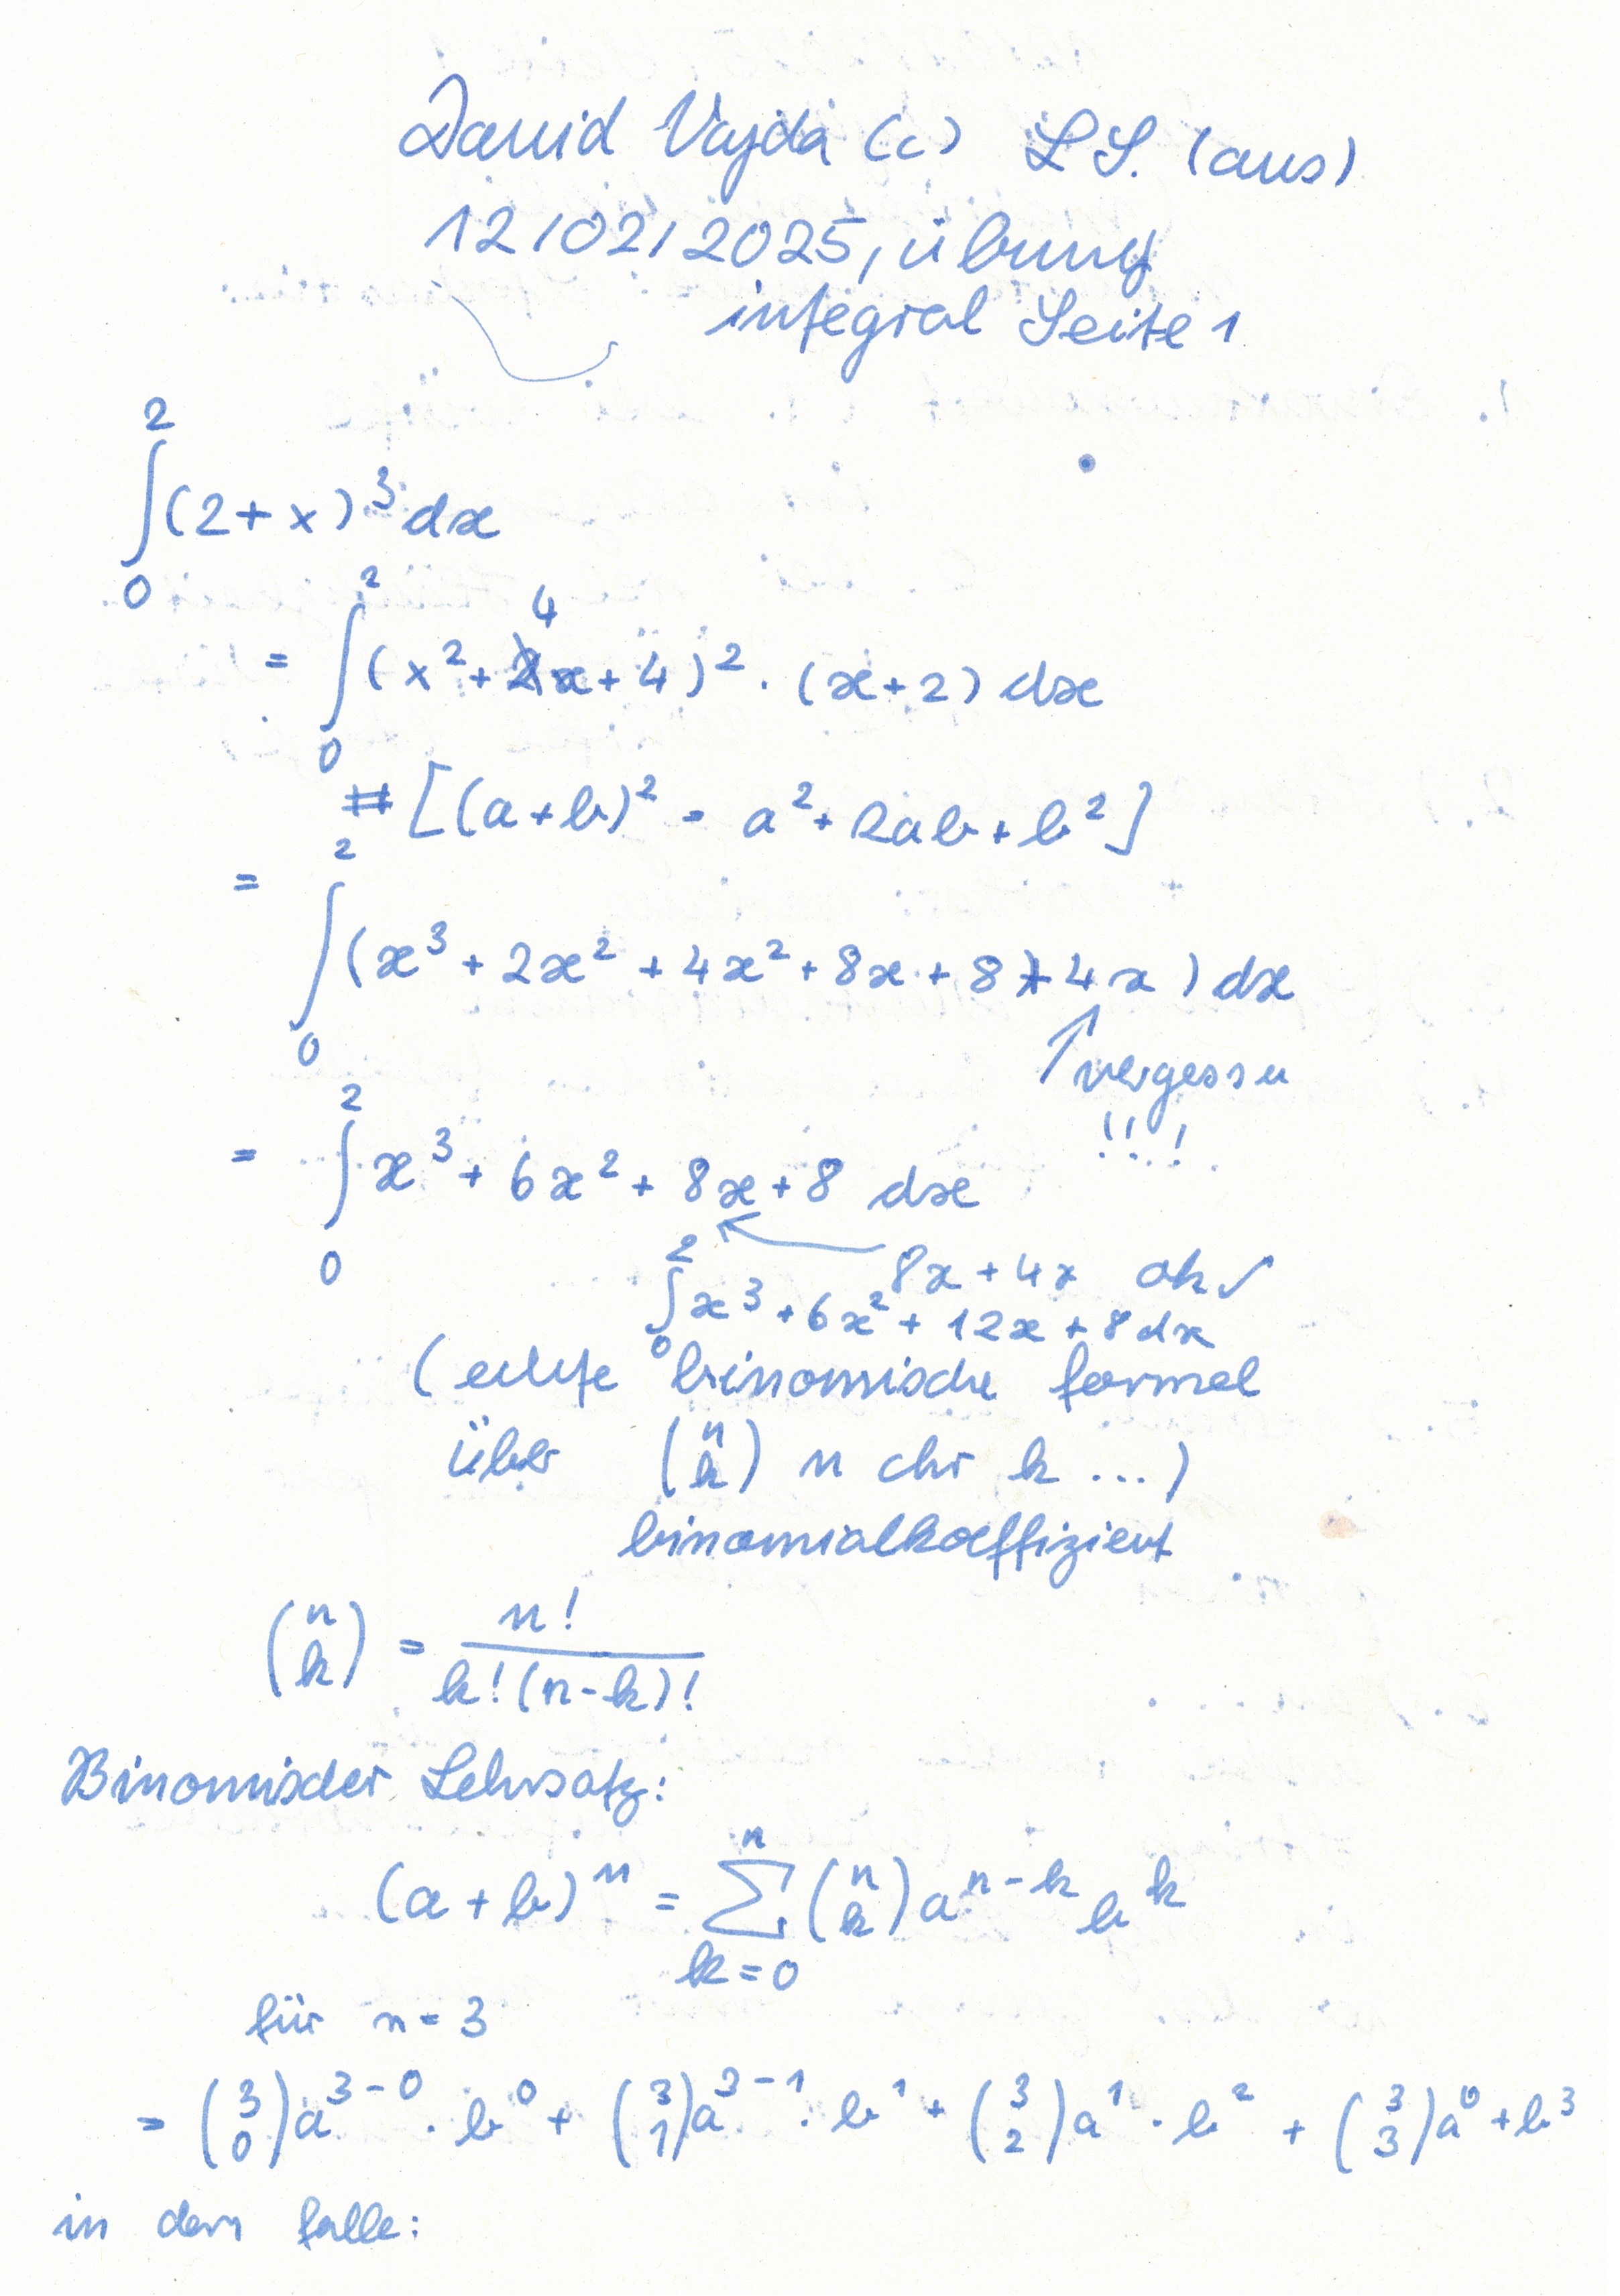 David Vajda (c) L.S. (aus)
12/02/2025, übung
integral Seite 1
∫₀² (2+x)³ dx
= ∫₀² (x² + 4x + 4)² · (x+2) dx
# [(a+b)² = a² + 2ab + b²]
= ∫₀² (x³ + 2x² + 4x² + 8x + 8 + 4x) dx
↑ vergessen
!!!
= ∫₀² x³ + 6x² + 8x + 8 dx
8x + 4x ok ✓
∫₀² x³ + 6x² + 12x + 8 dx
(echte binomische formel
über (n k) n chr k ...)
binomialkoeffizient
(n k) = n! / k!(n-k)!
Binomischer Lehrsatz:
(a+b)ⁿ = Σₖ₌₀ⁿ (n k) aⁿ⁻ᵏ bᵏ
für n = 3
= (3 0) a³⁻⁰ · b⁰ + (3 1) a³⁻¹ · b¹ + (3 2) a¹ · b² + (3 3) a⁰ + b³
in dem falle: